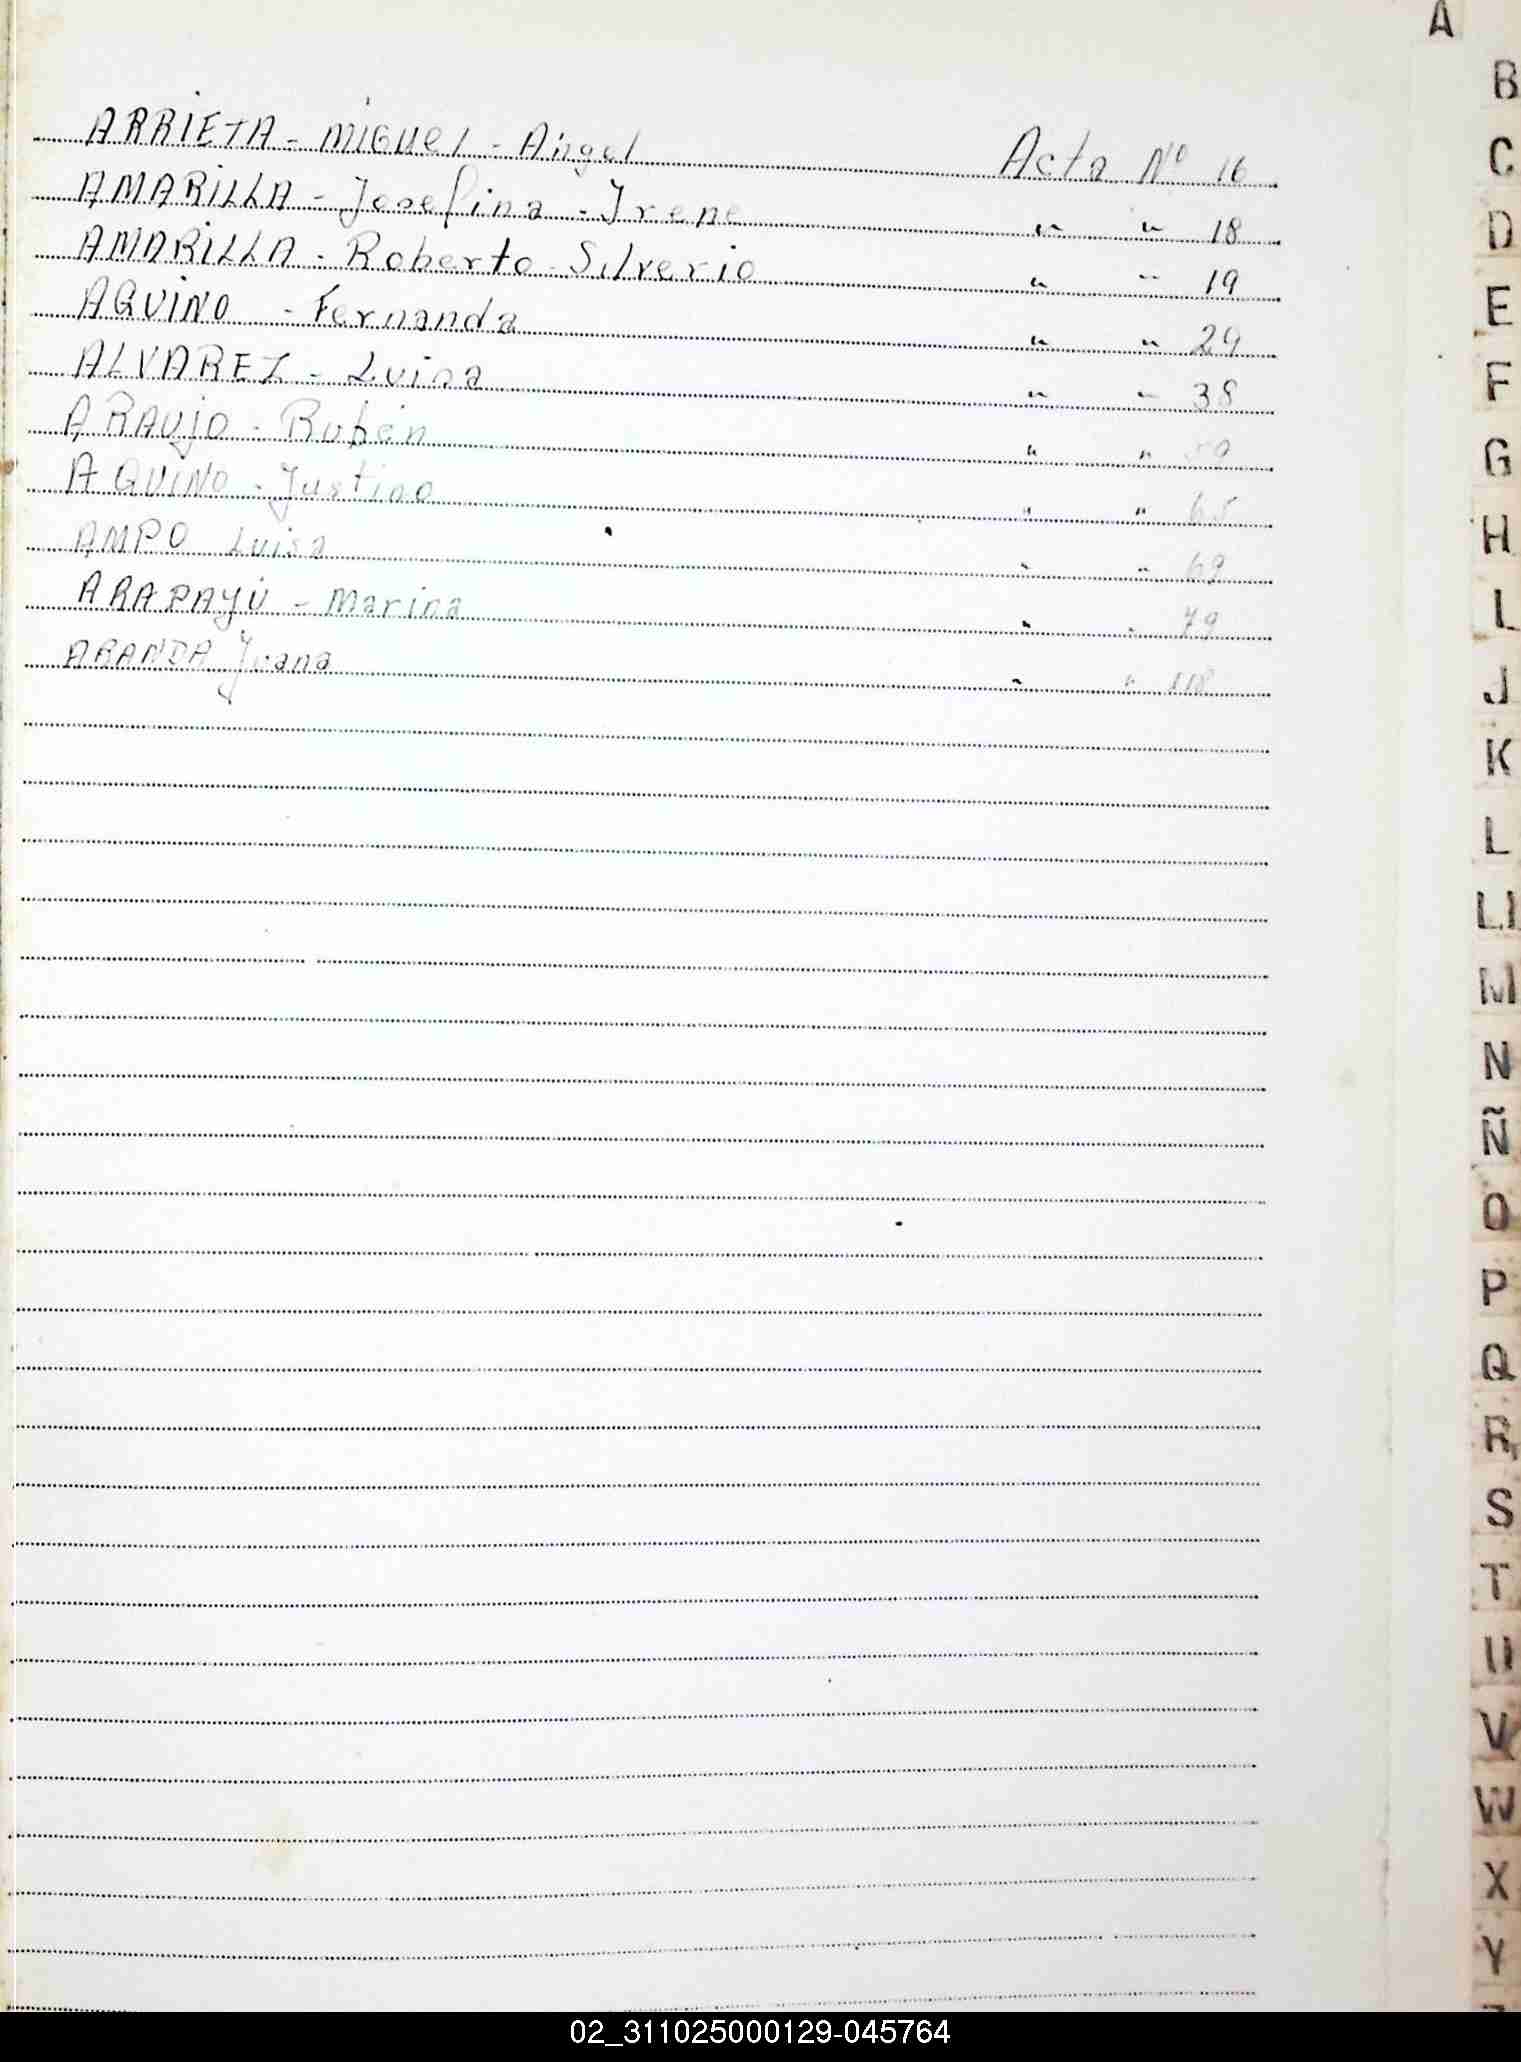 A
ARRIETA - MIGUEL - Angel Acta Nº 16
AMARILLA - Josefina - Irene " " 18
AMARILLA - Roberto - Silverio " " 19
AQUINO - Fernanda " " 29
ALVAREZ - Luisa " " 38
ARAUJO - Rubén " "
AQUINO - Justino " " 65
AMPO Luisa " " 69
ARAPAYÚ - Marina " " 79
ARANDA Juana " " 118
B
C
D
E
F
G
H
I
J
K
L
Ll
M
N
Ñ
O
P
Q
R
S
T
U
V
W
X
Y
02_311025000129-045764